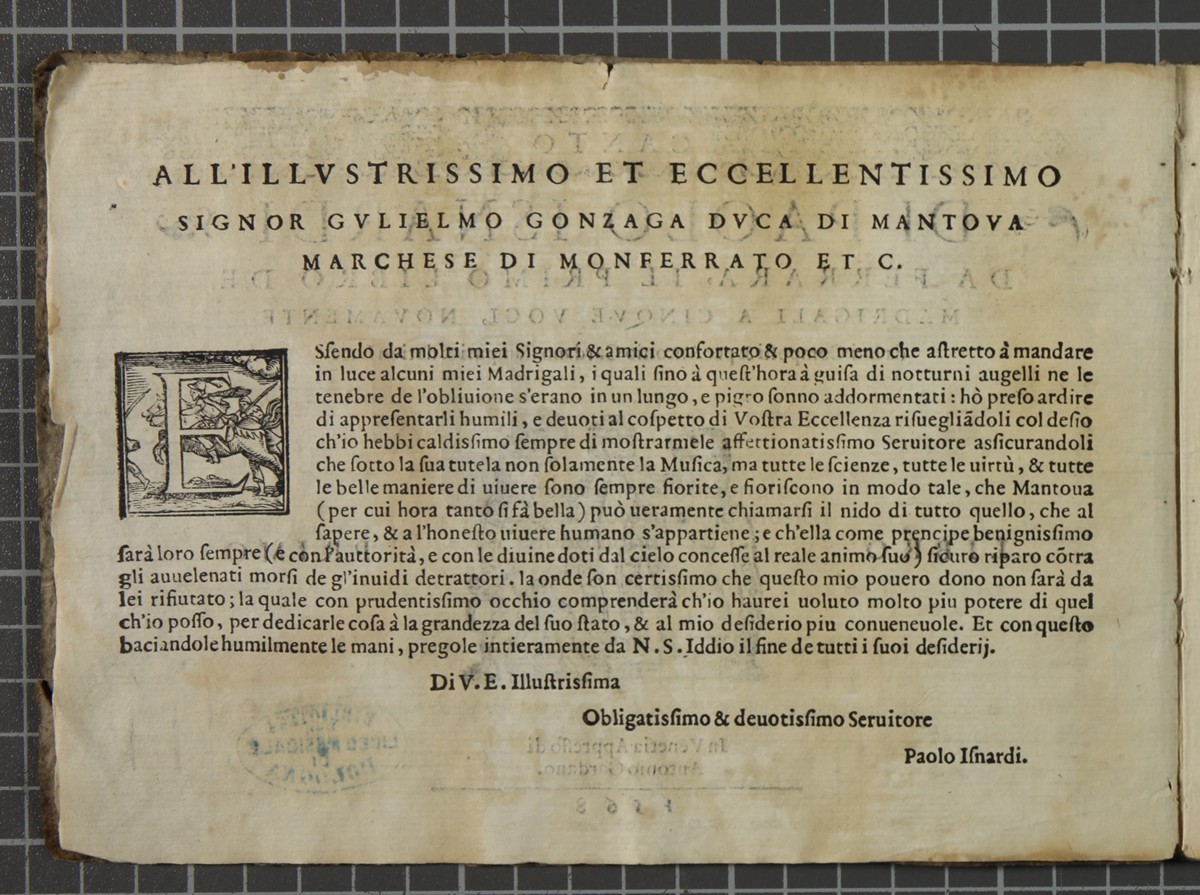 ALL'ILLVSTRISSIMO ET ECCELLENTISSIMO
SIGNOR GVLIELMO GONZAGA DVCA DI MANTOVA
MARCHESE DI MONFERRATO ET C.
ESſendo da molti miei Signori & amici confortato & poco meno che aſtretto à mandare
in luce alcuni miei Madrigali, i quali ſino à queſt'hora à guiſa di notturni augelli ne le
tenebre de l'obliuione s'erano in un lungo, e pigro ſonno addormentati: hò preſo ardire
di appreſentarli humili, e deuoti al coſpetto di Voſtra Eccellenza riſuegliãdoli col deſio
ch'io hebbi caldiſſimo ſempre di moſtrarmele affettionatiſſimo Seruitore aſſicurandoli
che ſotto la ſua tutela non ſolamente la Muſica, ma tutte le ſcienze, tutte le uirtù, & tutte
le belle maniere di uiuere ſono ſempre fiorite, e fioriſcono in modo tale, che Mantoua
(per cui hora tanto ſi fà bella) può ueramente chiamarſi il nido di tutto quello, che al
ſapere, & a l'honeſto uiuere humano s'appartiene; e ch'ella come prencipe benigniſſimo
ſarà loro ſempre (e con l'auttorità, e con le diuine doti dal cielo conceſſe al reale animo ſuo) ſicuro riparo cõtra
gli auuelenati morſi de gl'inuidi detrattori. la onde ſon certiſſimo che queſto mio pouero dono non ſarà da
lei rifiutato; la quale con prudentiſſimo occhio comprenderà ch'io haurei uoluto molto piu potere di quel
ch'io poſſo, per dedicarle coſa à la grandezza del ſuo ſtato, & al mio deſiderio piu conueneuole. Et con queſto
baciandole humilmente le mani, pregole intieramente da N. S. Iddio il fine de tutti i ſuoi deſiderij.
Di V. E. Illuſtriſſima
Obligatiſſimo & deuotiſſimo Seruitore
Paolo Iſnardi.